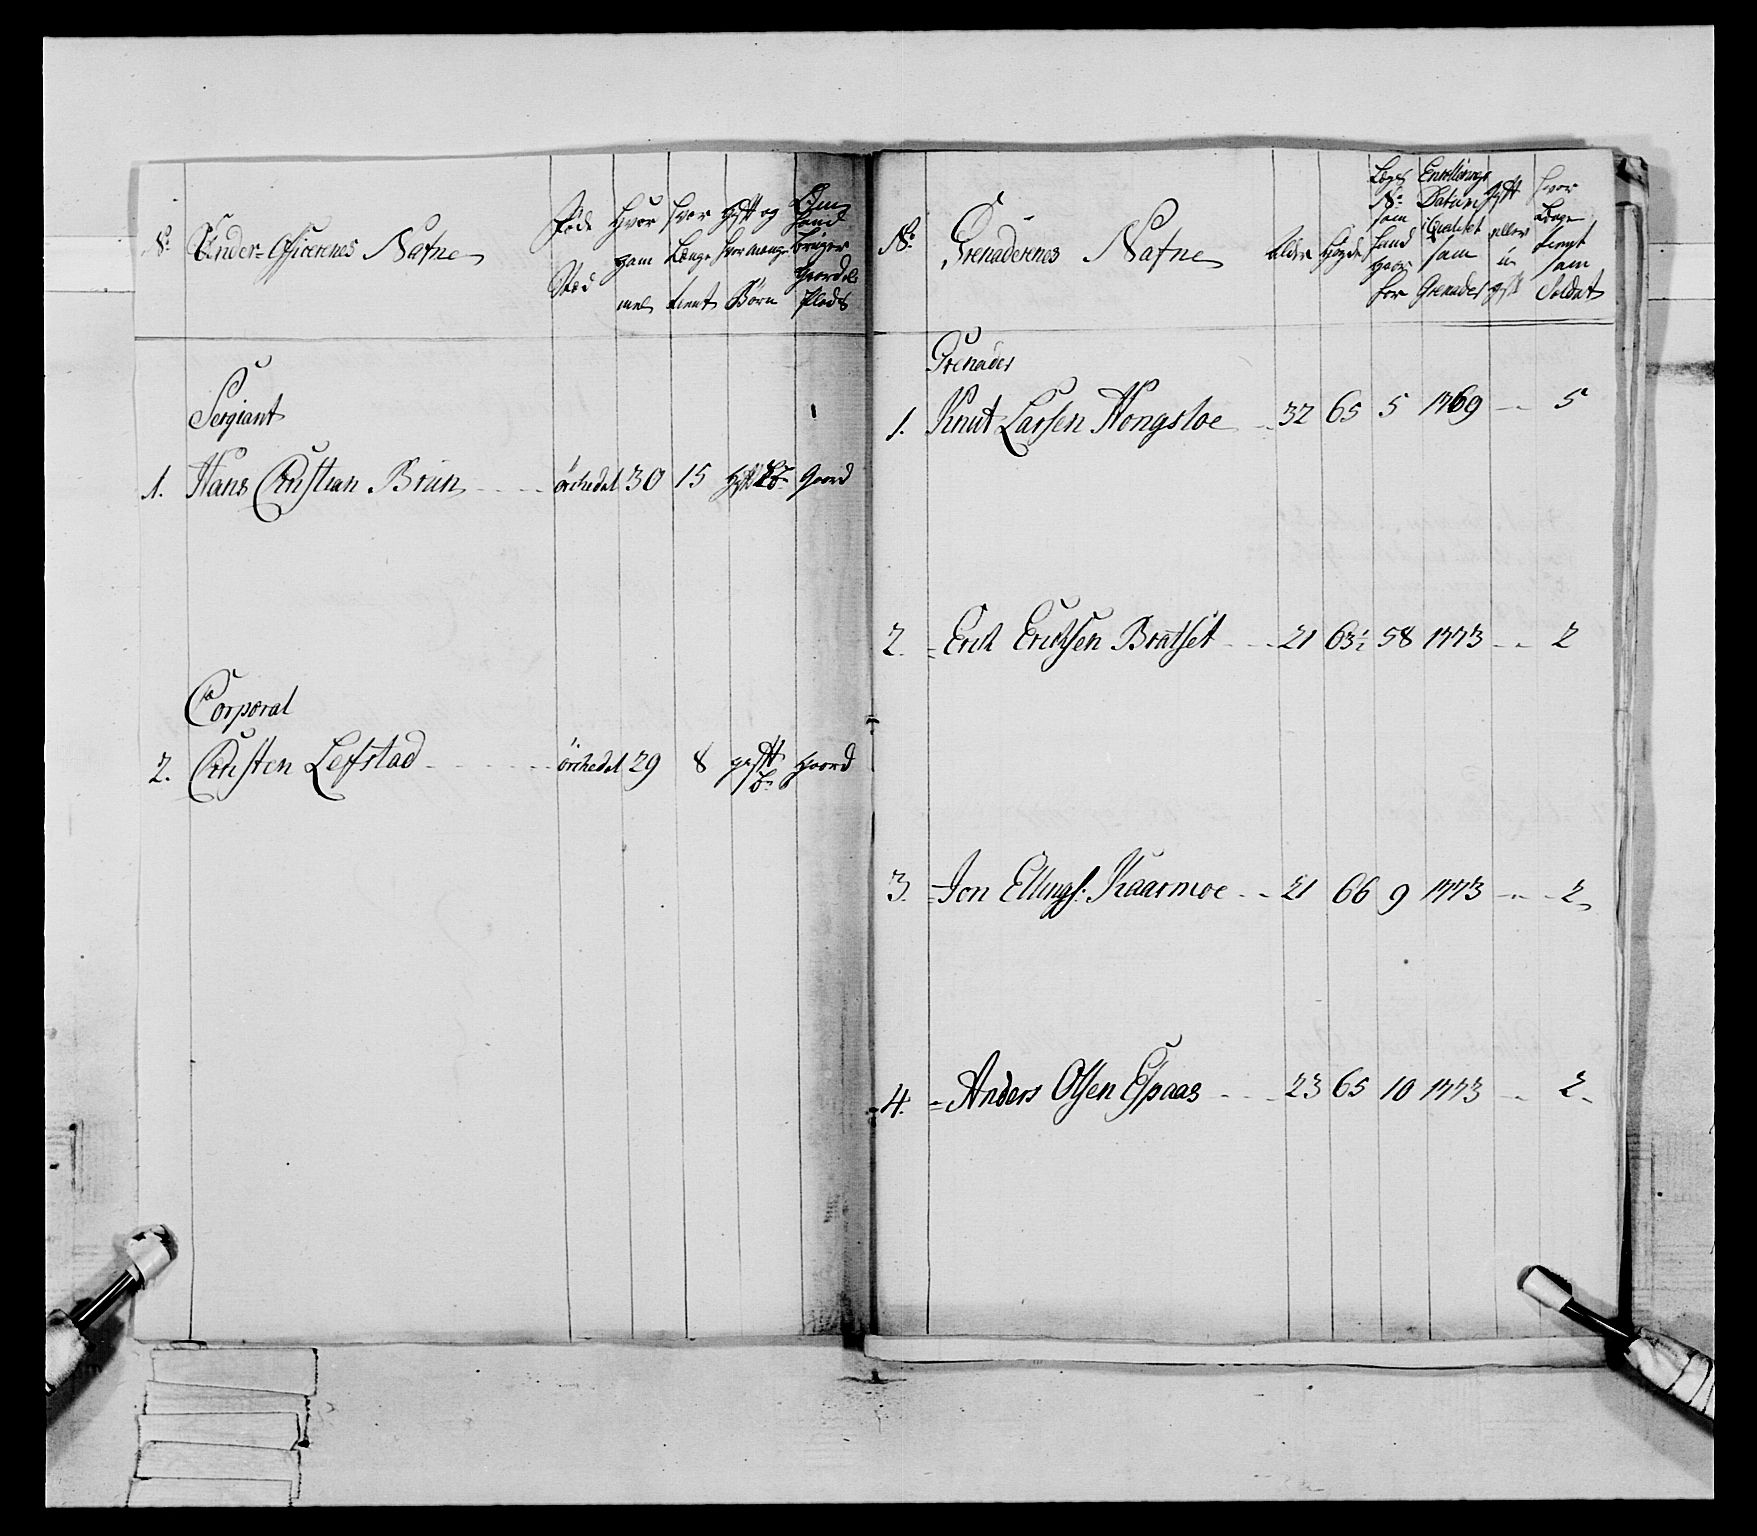 No: Under-Officerernes Nafne
Føde Stæd
Hvor gam mel
hvor Længe tient
gift og hvor mange Børn
Om hand bruger gaard el: Plads
Sergiant
1. Hans Christian Brun örchedal 30 15 gift Gaard
Corporal
2. Christen Lefstad örchedal 29 8 gift gaard
No: Grenaderernes Nafne
Alder
Høyde
Lægs No: som hand staar for
Enrollerings Datum i Qualitet som Grenader
gift eller u- gift
hvor Længe tient som Soldat
Grenader
1. Knut Larsen Hongsloe 32 65 5 1769 - 5
2. = Erich Erichsen Bratset 21 63½ 58 1773 - 2
3. = Jon Ellings: Kaarmoe 21 66 9 1773 - 2
4. = Anders Olsen Espaas 23 65 10 1773 - 2